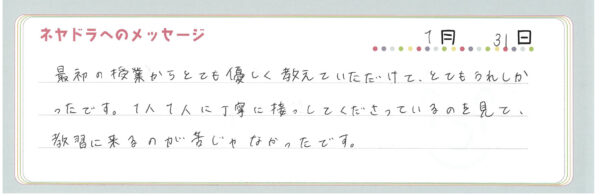 ネヤドラへのメッセージ
7月 31日
最初の授業からとても優しく教えていただけて、とてもうれしか
ったです。1人1人に丁寧に接っしてくださっているのを見て、
教習に来るのが苦じゃなかったです。